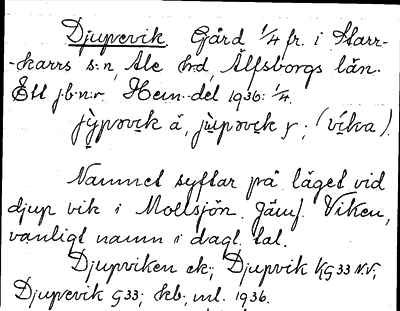 Djupevik Gård 1/4 fr. i Starr-
-kärrs s:n, Ale h:d, Älfsborgs län.
Ett j.b:n:r. Hem.del 1936: 1/4.
jỳpəvik å, jùpəvik y; (víka)
Namnet syftar på läget vid
djup vik i Mollsjön. Jämf. Viken,
vanligt namn i dagl. tal.
Djupviken ek; Djupvik KG33 N.V;
Djupevik G33; kb, ml. 1936.